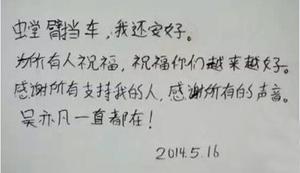 虫堂臂挡车，我还安好。
为所有人祝福，祝福你们越来越好。
感谢所有支持我的人，感谢所有的声音。
吴亦凡一直都在！
2014.5.16